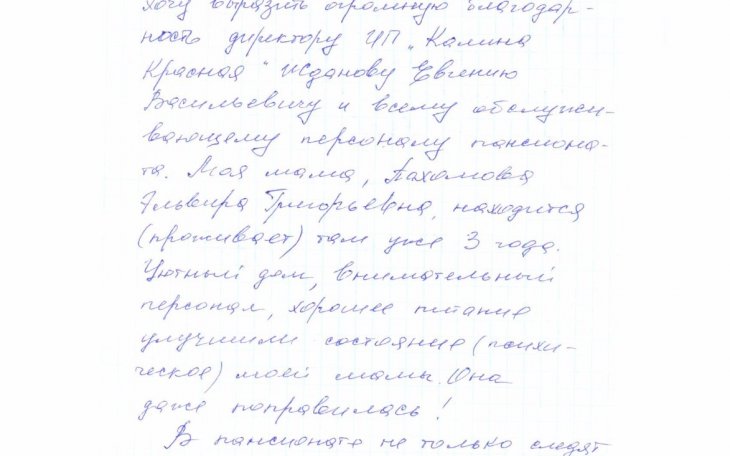 хочу выразить огромную благодар-
ность директору ЧП „Калина
Красная" Жданову Евгению
Васильевичу и всему обслужи-
вающему персоналу пансиона-
та. Моя мама, Пахомова
Эльвира Григорьевна, находится
(проживает) там уже 3 года.
Уютный дом, внимательный
персонал, хорошее питание
улучшили состояние (психи-
ческое) моей мамы. Она
даже поправилась!
В пансионате не только следят